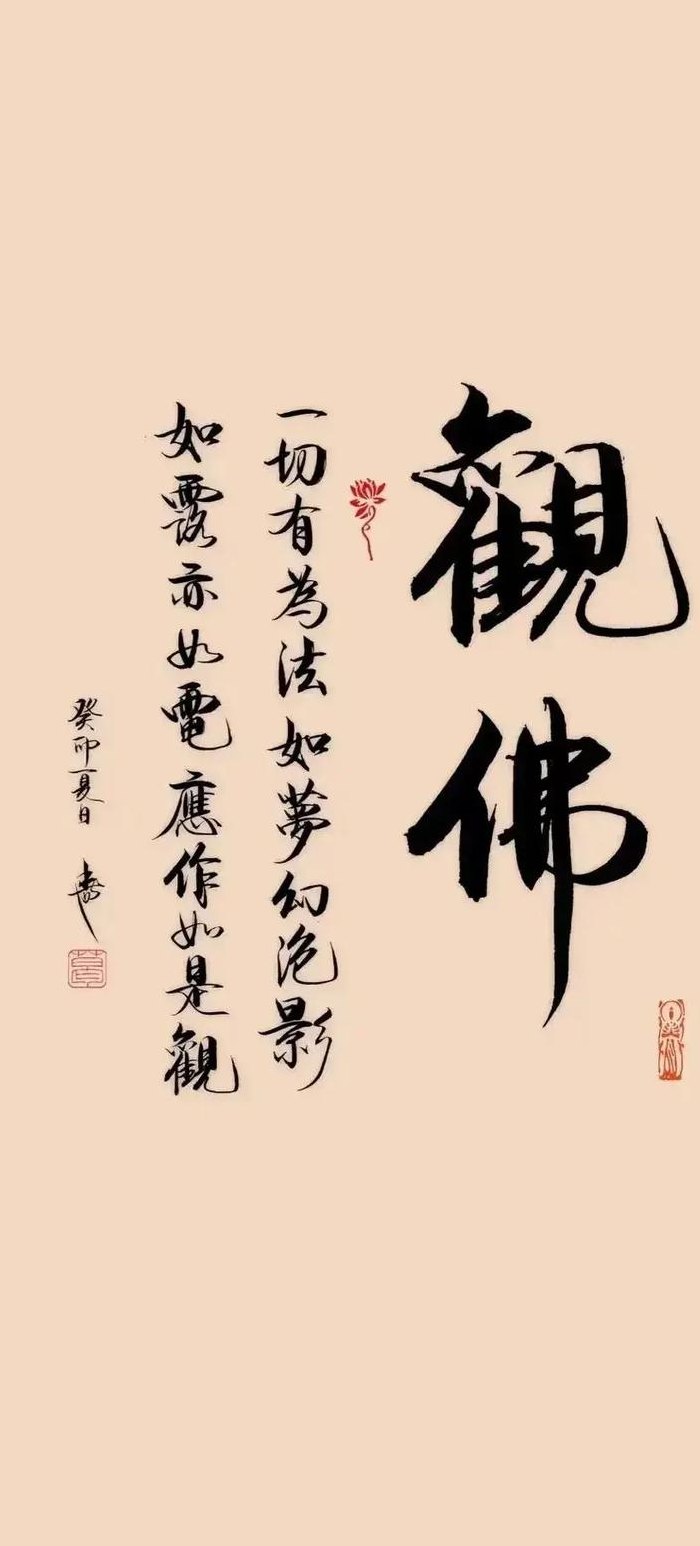 觀佛
一切有為法如夢幻泡影
如露亦如電應作如是觀
癸卯夏日